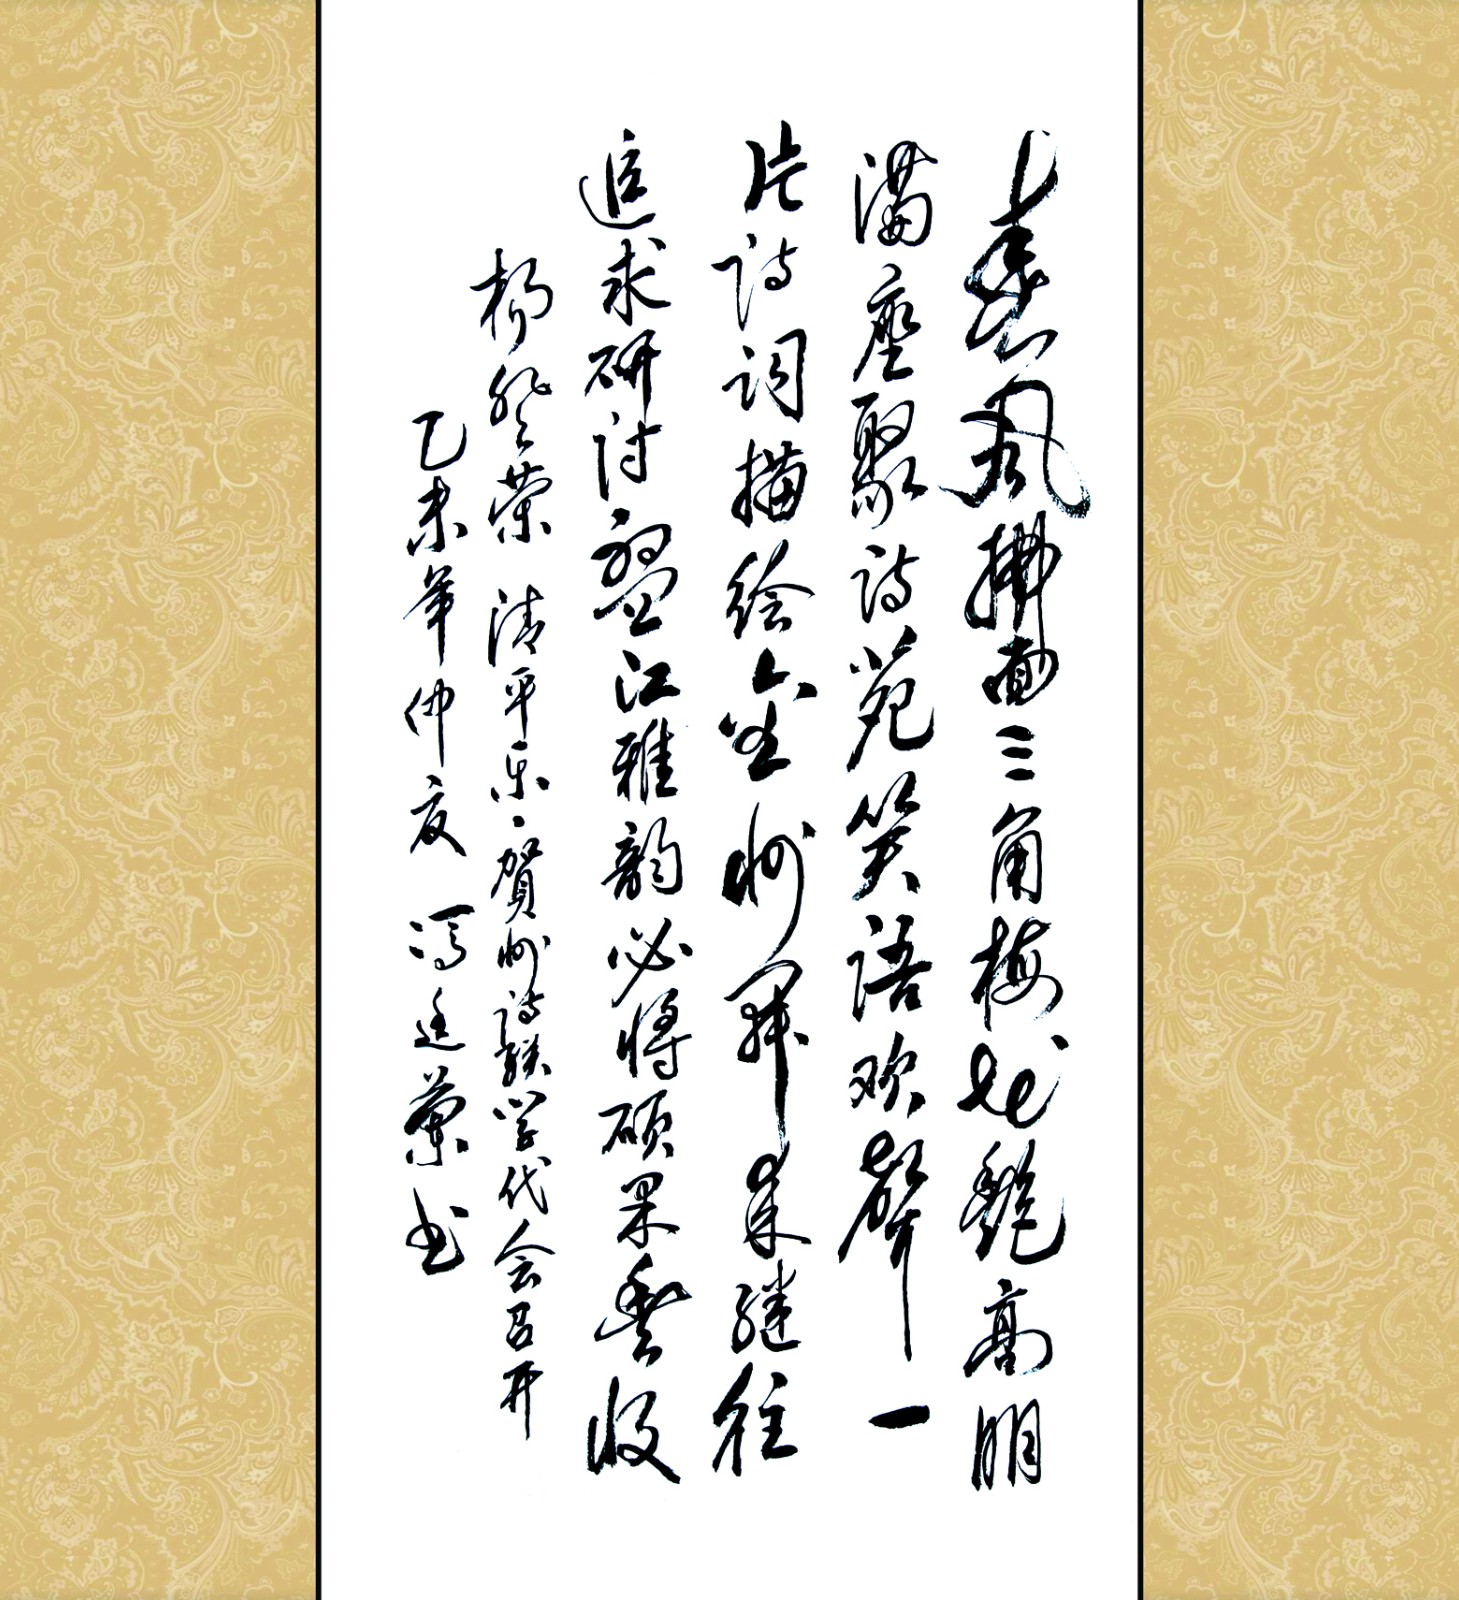 春风拂面三角梅花艳高朋
满座聚诗苑笑语欢聲一
片诗词描绘金州開来继往
追求研讨盘江雅韵必将硕果丰收
杨登荣 清平乐·賀州诗联学代会召开
乙未年仲夏 冯廷蘭书